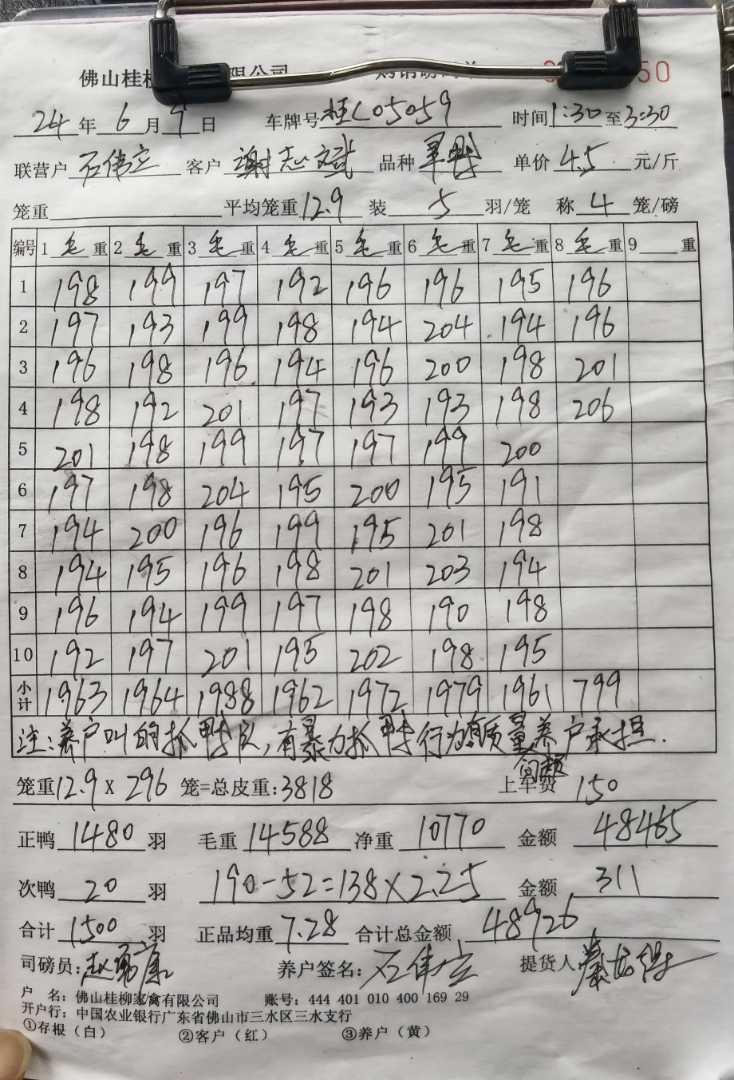 佛山桂柳 有限公司 购销磅码单 50
24年6月9日 车牌号桂L05059 时间1:30至3:30
联营户石伟立 客户谢志斌 品种 单价4.5元/斤
笼重 平均笼重12.9 装5羽/笼 称4笼/磅
编号 1毛重 2毛重 3毛重 4毛重 5毛重 6毛重 7毛重 8毛重 9 重
1 198 199 197 192 196 196 195 196
2 197 193 199 198 194 204 194 196
3 196 198 196 194 196 200 198 201
4 198 192 201 197 193 193 198 206
5 201 198 199 197 197 199 200
6 197 198 204 195 200 195 191
7 194 200 196 199 195 201 198
8 194 195 196 198 201 203 194
9 196 194 199 197 198 190 198
10 192 197 201 195 202 198 195
小计 1963 1964 1988 1962 1972 1979 1961 799
注:养户叫的抓鸭队,有暴力抓鸭行为有质量问题养户承担.
笼重12.9 x 296 笼=总皮重:3818 上车费 150
正鸭1480羽 毛重14588 净重10770 金额48465
次鸭20羽 190-52=138×2.25 金额311
合计1500羽 正品均重7.28 合计总金额48926
司磅员:赵勇康 养户签名:石伟立 提货人
户 名:佛山桂柳家禽有限公司 账号:444 401 010 400 169 29
开户行:中国农业银行广东省佛山市三水区三水支行
①存根(白) ②客户(红) ③养户(黄)